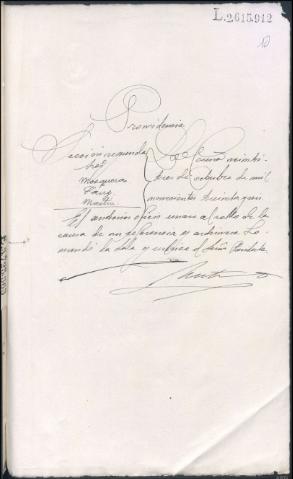 L.2615.912
10
Providencia
Sección segunda
Sres
Mosquera
Sanz
Martin
La Coruña veinti
tres de octubre de mil
novecientos treinta y un
El anterior oficio unase al rollo de la
causa de su referencia y archivese Lo
mandó la Sala y rubrica el Señor Presidente